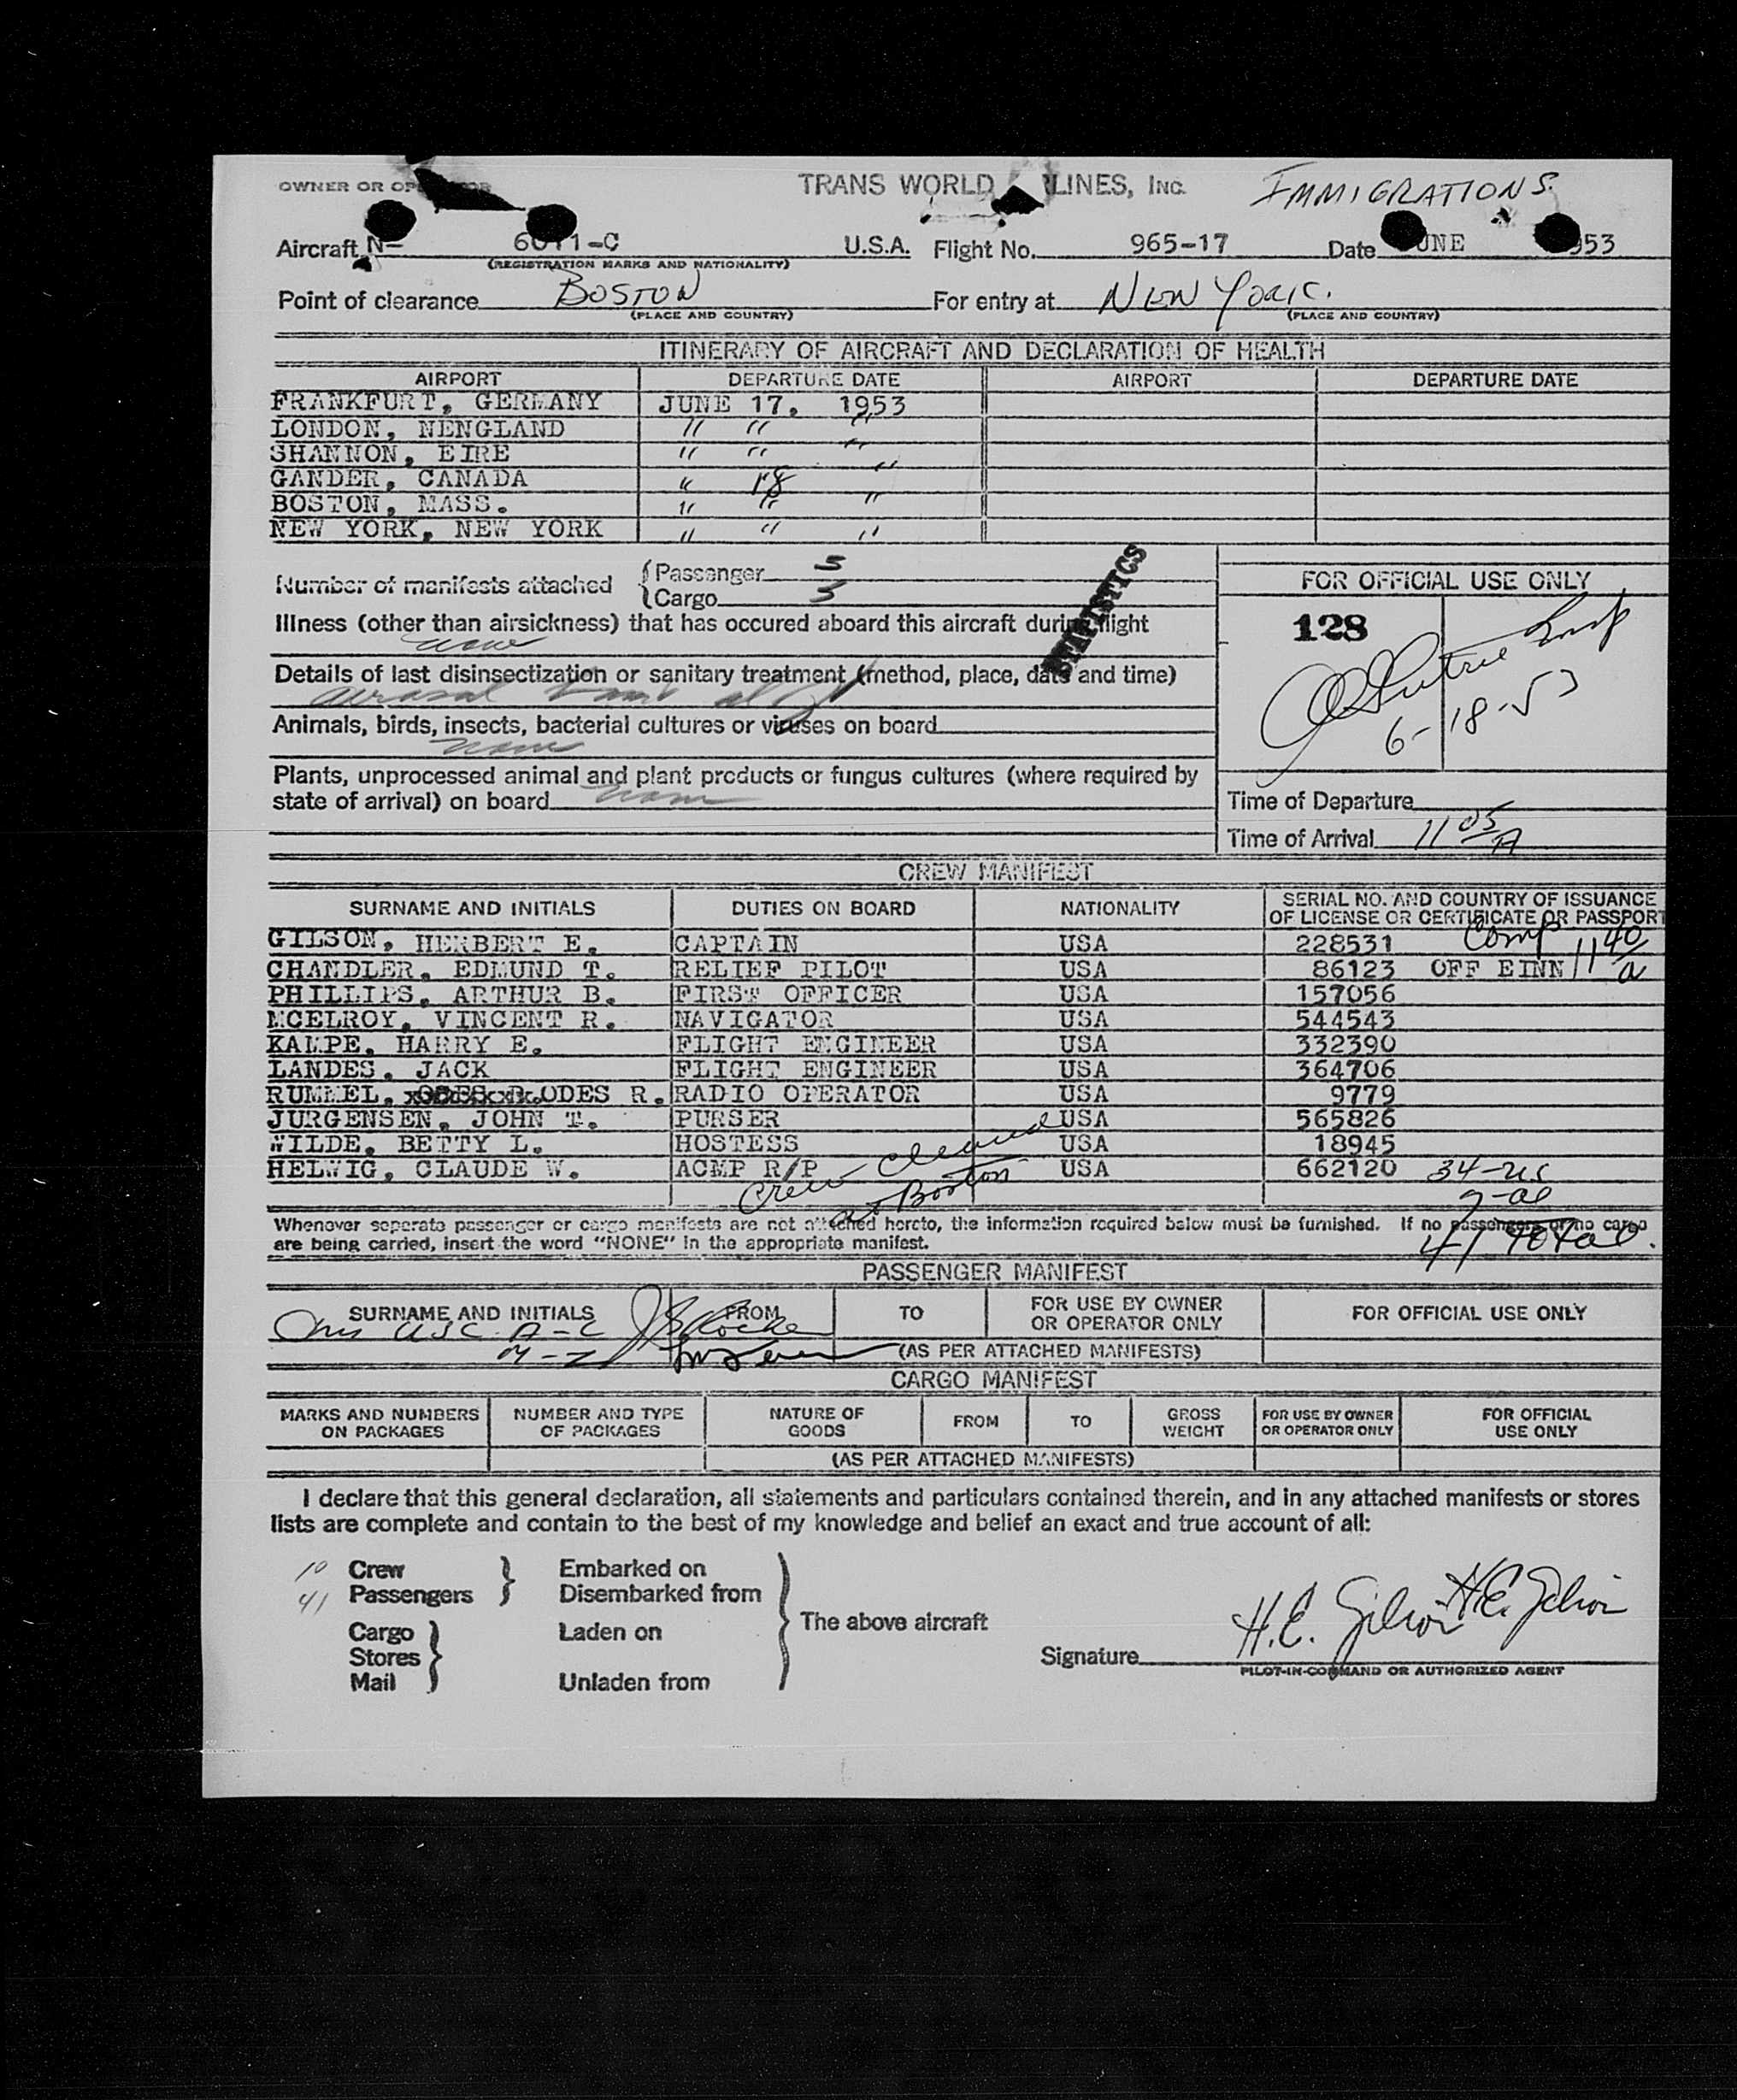 OWNER OR OPERATOR TRANS WORLD LINES, INC. IMMIGRATIONS.
Aircraft N- -C U.S.A. Flight No. 965-17 Date UNE 953
(REGISTRATION MARKS AND NATIONALITY)
Point of clearance BOSTON For entry at NEW YORK.
(PLACE AND COUNTRY) (PLACE AND COUNTRY)
ITINERARY OF AIRCRAFT AND DECLARATION OF HEALTH
AIRPORT DEPARTURE DATE AIRPORT DEPARTURE DATE
FRANKFURT, GERMANY JUNE 17, 1953
LONDON, NENGLAND " " "
SHANNON, EIRE " " "
GANDER, CANADA " 18 "
BOSTON, MASS. " " "
NEW YORK, NEW YORK " " "
Number of manifests attached { Passenger 5
{ Cargo 3
STATISTICS
FOR OFFICIAL USE ONLY
128
6-18-53
Illness (other than airsickness) that has occured aboard this aircraft during flight
none
Details of last disinsectization or sanitary treatment (method, place, date and time)
aerosol bomb at
Animals, birds, insects, bacterial cultures or viruses on board
none
Plants, unprocessed animal and plant products or fungus cultures (where required by
state of arrival) on board none
Time of Departure
Time of Arrival 11 05 A
CREW MANIFEST
SURNAME AND INITIALS DUTIES ON BOARD NATIONALITY SERIAL NO. AND COUNTRY OF ISSUANCE
OF LICENSE OR CERTIFICATE OR PASSPORT
GILSON, HERBERT E. CAPTAIN USA 228531 Comp 11 40
CHANDLER, EDMUND T. RELIEF PILOT USA 86123 OFF EINN a
PHILLIPS, ARTHUR B. FIRST OFFICER USA 157056
MCELROY, VINCENT R. NAVIGATOR USA 544543
KAMPE, HARRY E. FLIGHT ENGINEER USA 332390
LANDES, JACK FLIGHT ENGINEER USA 364706
RUMMEL, ODES R. RADIO OPERATOR USA 9779
JURGENSEN, JOHN T. PURSER USA 565826
WILDE, BETTY L. HOSTESS USA 18945
HELWIG, CLAUDE W. ACMP R/P USA 662120 34-us
Crew cleared
at Boston
7-al
Whenever seperate passenger or cargo manifests are not attached hereto, the information required below must be furnished. If no passengers or no cargo
are being carried, insert the word "NONE" in the appropriate manifest. 41 total.
PASSENGER MANIFEST
SURNAME AND INITIALS FROM TO FOR USE BY OWNER
OR OPERATOR ONLY FOR OFFICIAL USE ONLY
USC A-L
M-Z
(AS PER ATTACHED MANIFESTS)
CARGO MANIFEST
MARKS AND NUMBERS
ON PACKAGES NUMBER AND TYPE
OF PACKAGES NATURE OF
GOODS FROM TO GROSS
WEIGHT FOR USE BY OWNER
OR OPERATOR ONLY FOR OFFICIAL
USE ONLY
(AS PER ATTACHED MANIFESTS)
I declare that this general declaration, all statements and particulars contained therein, and in any attached manifests or stores
lists are complete and contain to the best of my knowledge and belief an exact and true account of all:
10 Crew Embarked on
41 Passengers Disembarked from
Cargo Laden on The above aircraft
Stores
Mail Unladen from
Signature H.E. Gilson H.E. Gilson
PILOT-IN-COMMAND OR AUTHORIZED AGENT